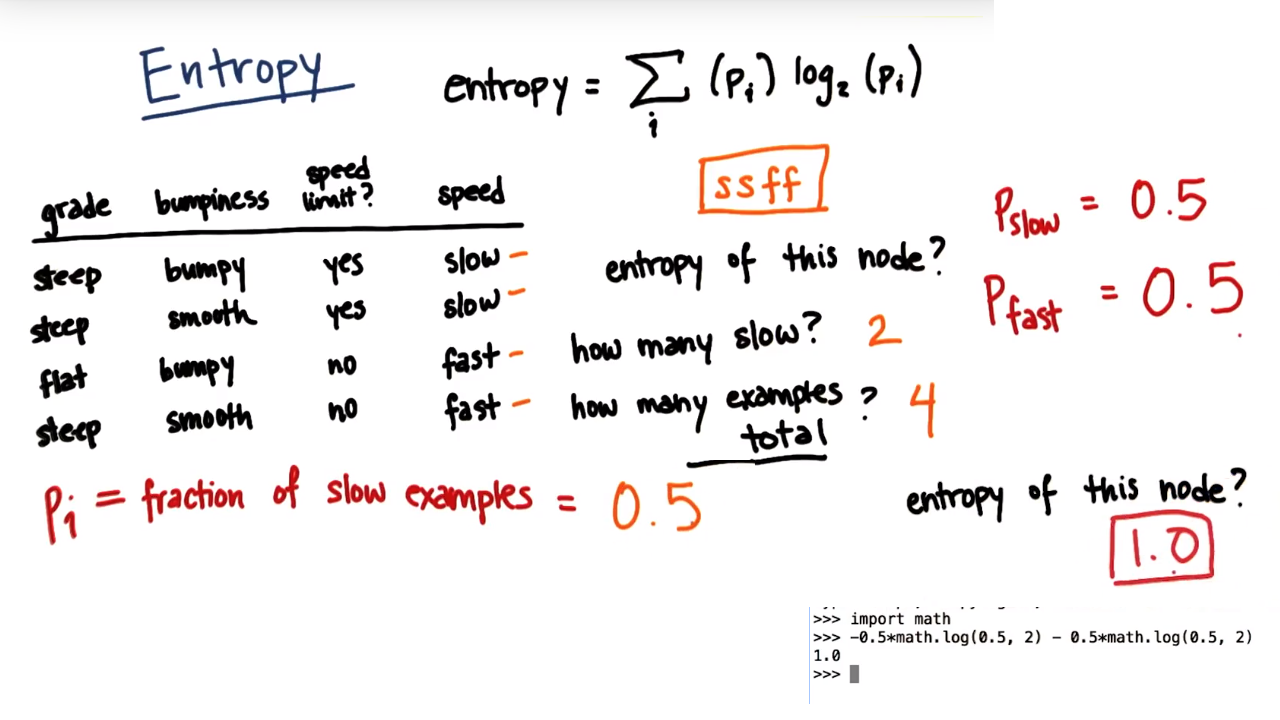 Entropy
entropy = Σ (Pi) log₂ (Pi)
i
grade bumpiness speed limit? speed
steep bumpy yes slow –
steep smooth yes slow –
flat bumpy no fast –
steep smooth no fast –
ssff
entropy of this node?
how many slow? 2
how many examples total? 4
Pslow = 0.5
Pfast = 0.5
Pi = fraction of slow examples = 0.5
entropy of this node?
1.0
>>> import math
>>> -0.5*math.log(0.5, 2) - 0.5*math.log(0.5, 2)
1.0
>>>